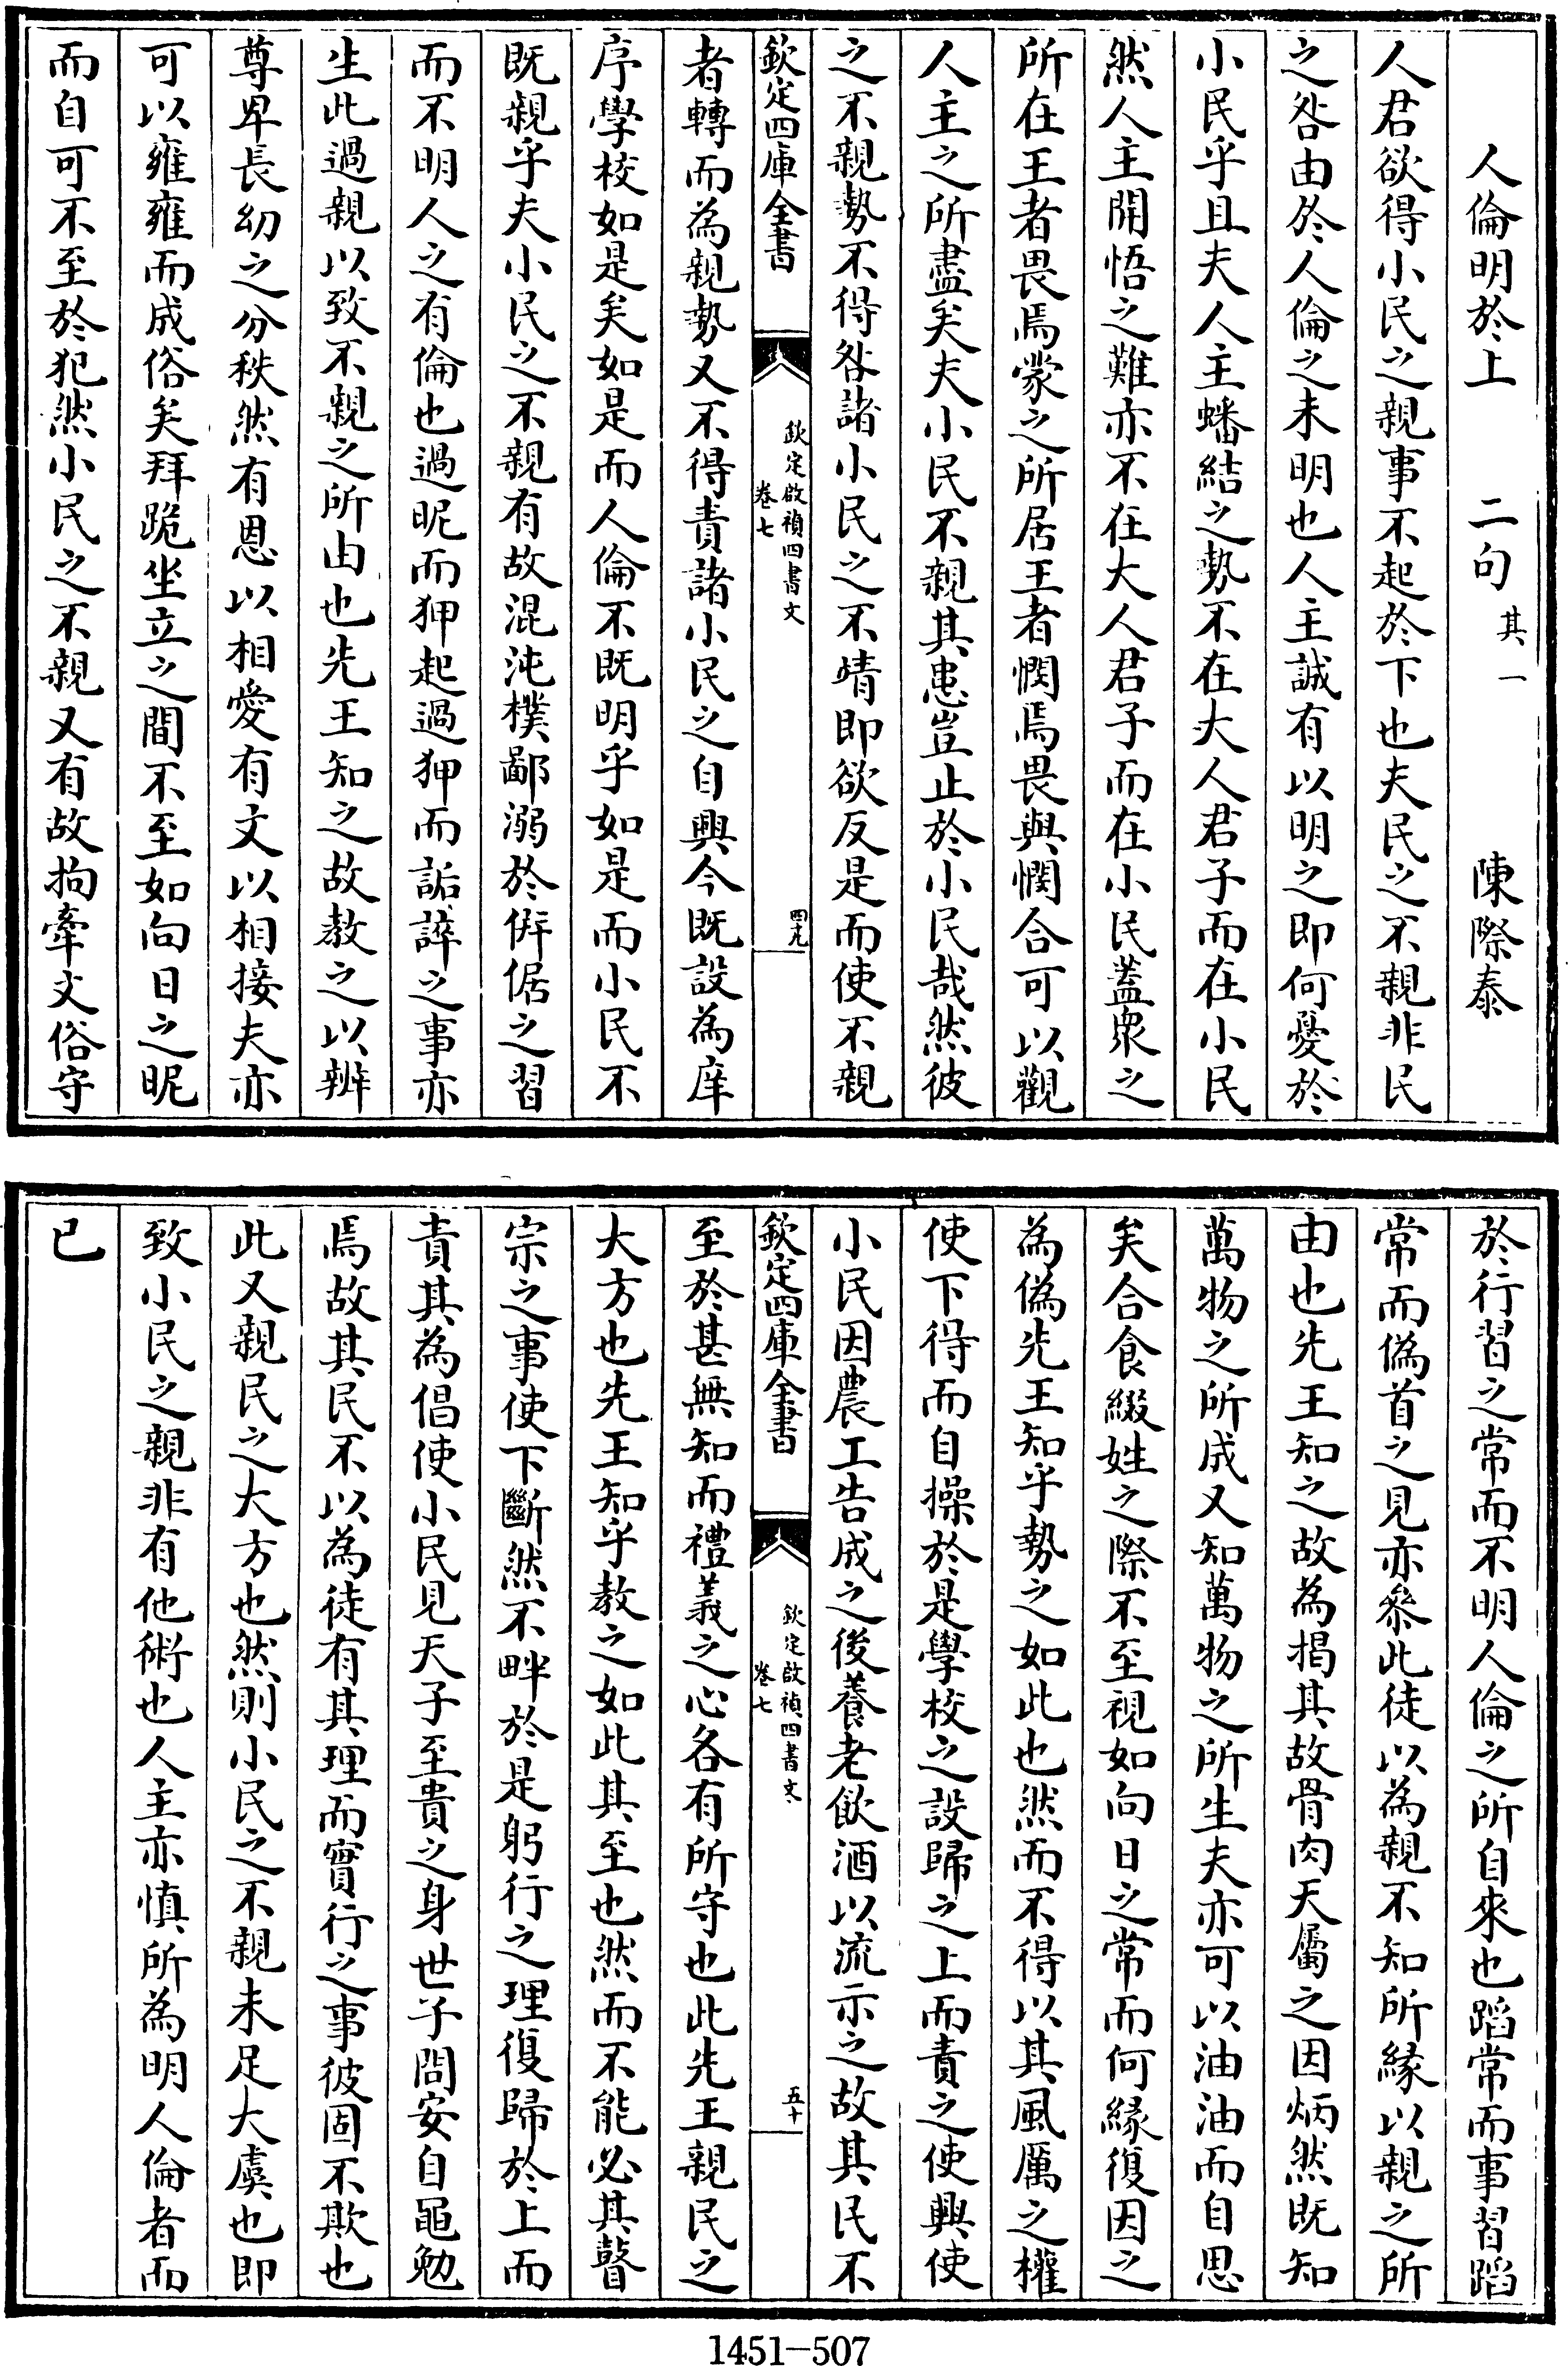 人倫明於上　二句其一　陳際泰
人君欲得小民之親事不起於下也夫民之不親非民
之咎由於人倫之未明也人主誠有以明之即何憂於
小民乎且夫人主蟠結之勢不在大人君子而在小民
然人主開悟之難亦不在大人君子而在小民蓋衆之
所在王者畏焉蒙之所居王者憫焉畏與憫合可以觀
人主之所盡矣夫小民不親其患豈止於小民哉然彼
之不親勢不得咎諸小民之不情即欲反是而使不親
欽定四庫全書
欽定啟禎四書文
卷七
四九
者轉而為親勢又不得責諸小民之自興今既設為庠
序學校如是矣如是而人倫不既明乎如是而小民不
既親乎夫小民之不親有故混沌樸鄙溺於侼倨之習
而不明人之有倫也過昵而狎起過狎而詬誶之事亦
生此過親以致不親之所由也先王知之故教之以辨
尊卑長幼之分秩然有恩以相愛有文以相接夫亦
可以雍雍而成俗矣拜跪坐立之間不至如向日之昵
而自可不至於犯然小民之不親又有故拘牽文俗守
於行習之常而不明人倫之所自來也蹈常而事習蹈
常而偽首之見亦叅此徒以為親不知所緣以親之所
由也先王知之故為揭其故骨肉天屬之因炳然既知
萬物之所成又知萬物之所生夫亦可以油油而自思
矣合食綴姓之際不至視如向日之常而何緣復因之
為偽先王知乎勢之如此也然而不得以其風厲之權
使下得而自操於是學校之設歸之上而責之使興使
小民因農工告成之後養老飲酒以流示之故其民不
欽定四庫全書
欽定啟禎四書文
卷七
五十
至於甚無知而禮義之心各有所守也此先王親民之
大方也先王知乎教之如此其至也然而不能必其督
宗之事使下斷然不畔於是躬行之理復歸於上而
責其為倡使小民見天子至貴之身世子問安自黽勉
焉故其民不以為徒有其理而實行之事彼固不欺也
此又親民之大方也然則小民之不親未足大虞也即
致小民之親非有他術也人主亦慎所為明人倫者而
已
1451-507